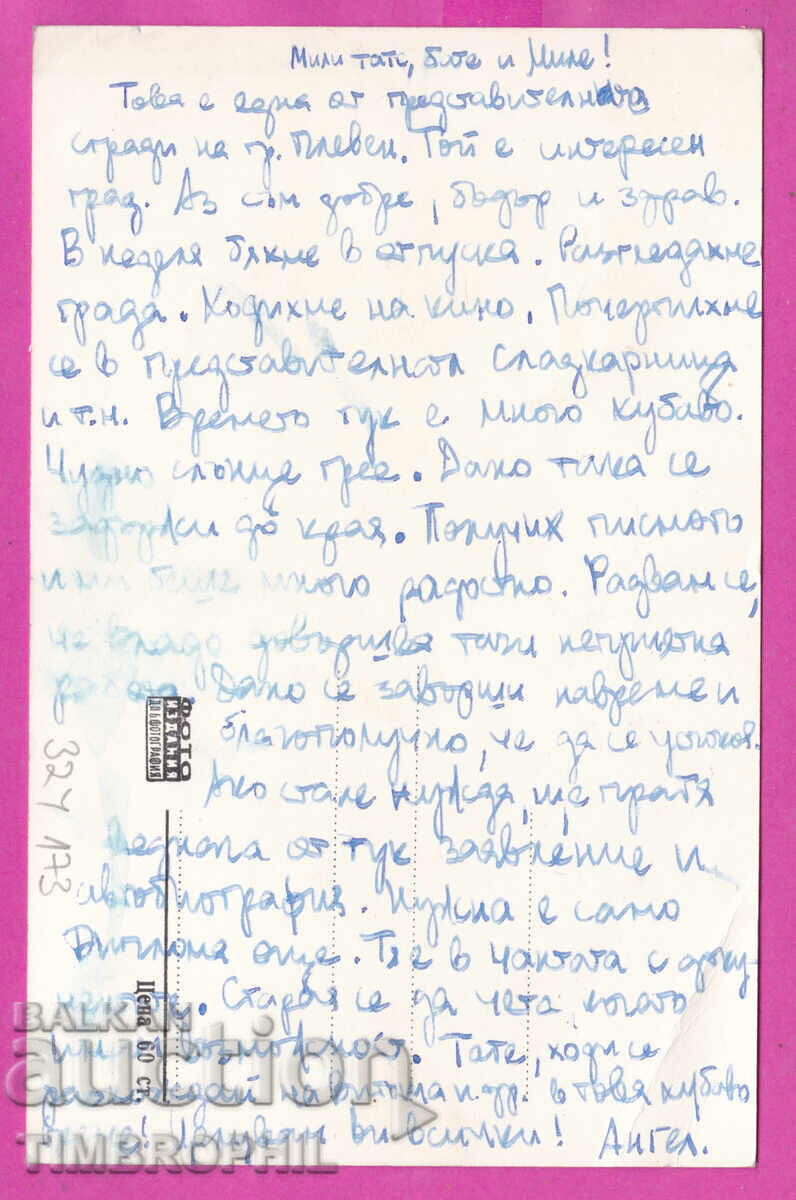 Мили тате, бате и Миле!
Това е една от представителните
сгради на гр. Плевен. Той е интересен
град. Аз съм добре, бодър и здрав.
В неделя бяхме в отпуска. Разгледахме
града. Ходихме на кино. Почерпихме
се в представителната сладкарница
и т.н. Времето тук е много хубаво.
Чудно слънце грее. Дано така се
задържи до края. Получих писмото
и ми беше много радостно. Радвам се,
че Владо довършва тази неприятна
работа. Дано се завърши навреме и
благополучно, че да се успокои.
Ако стане нужда, ще пратя
веднага от тук заявление и
автобиография. Нужна е само
Диплома още. Тя е в чантата с доку-
ментите. Старая се да чета, когато
имам възможност. Тате, ходи се
разглеждай на Витоша и др. в това хубаво
време! Целувам ви всички! Ангел.
ФОТО
ИЗДАНИЯ
ДП БФОТОГРАФИЯ
Цена 60 ст.
324173
BALKAN
auction
TIMBROPHIL